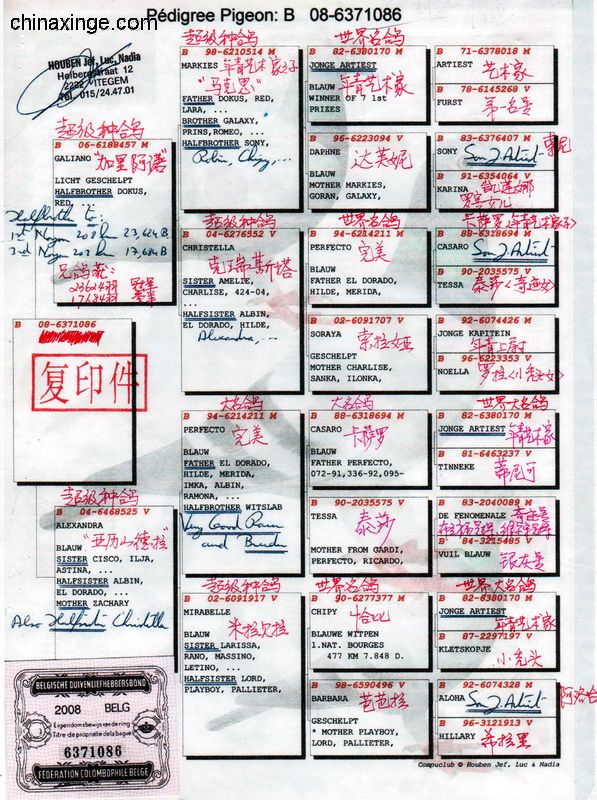 chinaxinge.com
Pédigree Pigeon: B 08-6371086
HOUBEN Jef, Luc, Nadia
2222 ITEGEM
Tel. 015/24.47.01
超级种鸽
B 06-6188457 M
GALIANO "加里阿诺"
LICHT GESCHELPT
HALFBROTHER DOKUS,
RED,
23,624 B
17,684 B
B 08-6371086
复印件
超级种鸽
B 04-6468525 V
ALEXANDRA
"亚历山德拉"
BLAUW
SISTER CISCO, ILJA,
ASTINA, ...
HALFSISTER ALBIN,
EL DORADO, ...
MOTHER ZACHARY
Also Halfsister Christella
BELGISCHE DUIVENLIEFHEBBERSBOND
2008 BELG
Eigendomsbewijs van de ring
Titre de propriété de la bague
6371086
FÉDÉRATION COLOMBOPHILE BELGE
超级种鸽
B 98-6210514 M
MARKIES 年青艺术家之子
"马克思"
FATHER DOKUS, RED,
LARA, ...
BROTHER GALAXY,
PRINS,ROMEO, ...
HALFBROTHER SONY,
超级种鸽
B 04-6276552 V
CHRISTELLA
克瑞斯塔
SISTER AMELIE,
CHARLISE, 424-04,
...
HALFSISTER ALBIN,
EL DORADO, HILDE,
Alexandra, ...
大名鸽
B 94-6214211 M
PERFECTO 完美
BLAUW
FATHER EL DORADO,
HILDE, MERIDA,
IMKA, ALBIN,
RAMONA, ...
HALFBROTHER WITSLAB
Very Good Racer
and Breeder
超级种鸽
B 02-6091917 V
MIRABELLE
BLAUW
SISTER LARISSA,
RANO, MASSINO,
LETINO, ...
HALFSISTER LORD,
PLAYBOY, PALLIETER,
世界名鸽
B 82-6380170 M
JONGE ARTIEST
BLAUW 年青艺术家
WINNER OF 7 1st
PRIZES
B 96-6223094 V
DAPHNE 达芙妮
BLAUW
MOTHER MARKIES,
GORAN, GALAXY,
世界名鸽
B 94-6214211 M
PERFECTO 完美
BLAUW
FATHER EL DORADO,
HILDE, MERIDA,
B 02-6091707 V
SORAYA 索拉娅
GESCHELPT
MOTHER CHARLISE,
SANKA, ILONKA,
大名鸽
B 88-6318694 M
CASARO 卡萨罗
BLAUW
FATHER PERFECTO,
072-91,336-92,095-
B 90-2035575 V
TESSA 泰莎
MOTHER FROM GARDI,
PERFECTO, RICARDO,
世界名鸽
B 90-6277377 M
CHIPY 恰比
BLAUWE WITPEN
1.NAT. BOURGES
477 KM 7.848 D.
B 98-6590496 V
BARBARA 芭芭拉
GESCHELPT
* MOTHER PLAYBOY,
LORD, PALLIETER,
世界名鸽
B 71-6378018 M
ARTIEST 艺术家
B 78-6145268 V
FURST 第一名号
B 83-6376407 M
SONY Son J Artiest
B 91-6354064 V
KARINA
卡萨罗
B 88-6318694 M
CASARO Son J Artiest
B 90-2035575 V
TESSA 泰莎
B 92-6074426 M
JONGE KAPITEIN
年青上尉
B 96-6223353 V
NOELLA
世界大名鸽
B 82-6380170 M
JONGE ARTIEST 年青艺术家
B 81-6463237 V
TINNEKE 蒂尼可
B 83-2040089 M
DE FENOMENALE
B 84-3215485 V
VUIL BLAUW
世界大名鸽
B 82-6380170 M
JONGE ARTIEST
年青艺术家
B 87-2297197 V
KLETSKOPJE
小秃头
B 92-6074328 M
ALOHA Son J Artiest
B 96-3121913 V
HILLARY 希拉里
Compuclub © Houben Jef, Luc & Nadia